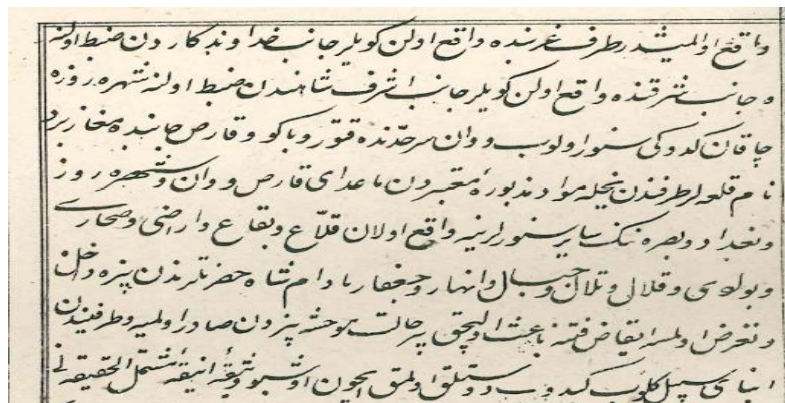 واقع اولمیشدر طرف غربنده واقع اولن کویلر جانب خداوندکاردن ضبط اولنه
و جانب شرقنده واقع اولن کویلر جانب اشرف شاهیدن ضبط اولنه شهره زوره
چاقان کدوکی سنور اولوب و وان سرحدنده قتور و باکو و قارص جانبنده مغازبرد
نام قلعه لر طرفندن یخیله مواد مذبوره معتبردن ماعدای قارص و وان و شهره زور
و بغداد و بصره نک سایر سنورلرینه واقع اولان قلاع و بقاع و اراضی و صحاری
و بوادی و قلال و تلال و جبال و انهار و جفاره مادام شاه حضرتلرندن یزه دخل
و تعرض اولمیه ایقاض فتنه باعث اولیجق بر حالت موحشه بزدن صادر اولمیه و طرفیندن
ابنای سبیل کلوب کیدوب دوستلق اولمق ایچون اوشبو وثیقه انیقه مشتمل الحقیقه نی